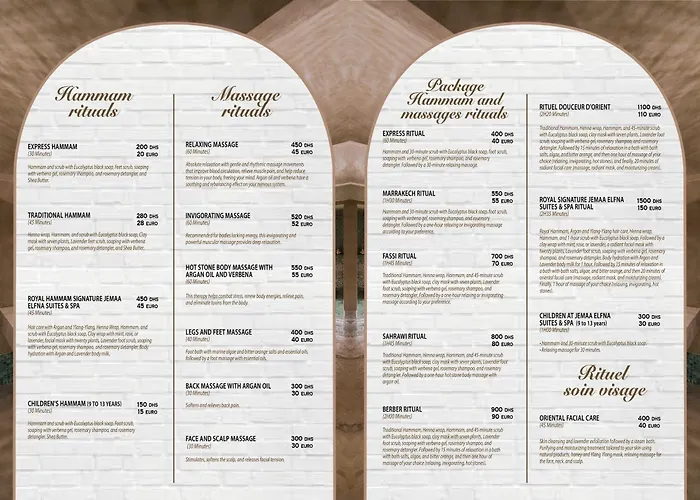 Hammam
rituals
EXPRESS HAMMAM 200 DHS
(30 Minutes) 20 EURO
Hammam and scrub with Eucalyptus black soap, Foot scrub,
soaping with verbena gel, rosemary shampoo, and rosemary detangler, and
Shea Butter.
TRADITIONAL HAMMAM 280 DHS
(45 Minutes) 28 EURO
Henna Wrap, Hammam, and scrub with Eucalyptus black soap, Clay
mask with seven plants, Lavender feet scrub, soaping with verbena
gel, rosemary shampoo, and rosemary detangler, and Shea Butter.
ROYAL HAMMAM SIGNATURE JEMAA 450 DHS
ELFNA SUITES & SPA 45 EURO
(45 Minutes)
Hair care with Argan and Ylang-Ylang, Henna Wrap, Hammam, and
scrub with Eucalyptus black soap, Clay wrap with mint, rose, or
lavender, facial mask with twenty plants, Lavender foot scrub, soaping
with verbena gel, rosemary shampoo, and rosemary detangler. Body
hydration with Argan and Lavender body milk.
CHILDREN'S HAMMAM (9 TO 13 YEARS) 150 DHS
(30 Minutes) 15 EURO
Hammam and scrub with Eucalyptus black soap, Foot scrub,
soaping with verbena gel, rosemary shampoo, and rosemary
detangler, Shea Butter.
Massage
rituals
RELAXING MASSAGE 450 DHS
(60 Minutes) 45 EURO
Absolute relaxation with gentle and rhythmic massage movements
that improve blood circulation, relieve muscle pain, and help reduce
tension in your body, freeing your mind. Argan oil and verbena have a
soothing and rebalancing effect on your nervous system.
INVIGORATING MASSAGE 520 DHS
(60 Minutes) 52 EURO
Recommended for bodies lacking energy, this invigorating and
powerful muscular massage provides deep relaxation.
HOT STONE BODY MASSAGE WITH 550 DHS
ARGAN OIL AND VERBENA 55 EURO
(60 Minutes)
This therapy helps combat stress, renew body energies, relieve pain,
and eliminate toxins from the body.
LEGS AND FEET MASSAGE 400 DHS
(40 Minutes) 40 EURO
Foot bath with marine algae and bitter orange salts and essential oils,
followed by a foot massage with essential oils.
BACK MASSAGE WITH ARGAN OIL 300 DHS
(30 Minutes) 30 EURO
Softens and relieves back pain.
FACE AND SCALP MASSAGE 300 DHS
(30 Minutes) 30 EURO
Stimulates, softens the scalp, and releases facial tension.
Package
Hammam and
massages rituals
EXPRESS RITUAL 400 DHS
(60 Minutes) 40 EURO
Hammam and 30-minute scrub with Eucalyptus black soap, foot scrub,
soaping with verbena gel, rosemary shampoo, and rosemary
detangler. Followed by a 30-minute relaxing massage.
MARRAKECH RITUAL 550 DHS
(1H00 Minutes) 55 EURO
Hammam and 30-minute scrub with Eucalyptus black soap, foot scrub,
soaping with verbena gel, rosemary shampoo, and rosemary
detangler. Followed by a one-hour relaxing or invigorating massage
according to your preference.
FASSI RITUAL 700 DHS
(1H45 Minutes) 70 EURO
Traditional Hammam, Henna wrap, Hammam, and 45-minute scrub
with Eucalyptus black soap, clay mask with seven plants, Lavender
foot scrub, soaping with verbena gel, rosemary shampoo, and rosemary
detangler. Followed by a one-hour relaxing or invigorating
massage according to your preference.
SAHRAWI RITUAL 800 DHS
(1H45 Minutes) 80 EURO
Traditional Hammam, Henna wrap, Hammam, and 45-minute scrub
with Eucalyptus black soap, clay mask with seven plants, Lavender
foot scrub, soaping with verbena gel, rosemary shampoo, and rosemary
detangler. Followed by a one-hour hot stone body massage with
argan oil.
BERBER RITUAL 900 DHS
(2H00 Minutes) 90 EURO
Traditional Hammam, Henna wrap, Hammam, and 45-minute scrub
with Eucalyptus black soap, clay mask with seven plants, Lavender
foot scrub, soaping with verbena gel, rosemary shampoo, and rosemary
detangler. Followed by 15 minutes of relaxation in a bath
with salts, algae, and bitter orange, and then one hour of
massage of your choice (relaxing, invigorating, hot stones).
RITUEL DOUCEUR D'ORIENT 1100 DHS
(2H20 Minutes) 110 EURO
Traditional Hammam, Henna wrap, Hammam, and 45-minute scrub
with Eucalyptus black soap, clay mask with seven plants, Lavender foot
scrub, soaping with verbena gel, rosemary shampoo, and rosemary
detangler. Followed by 15 minutes of relaxation in a bath with bath
salts, algae, and bitter orange, and then one hour of massage of your
choice (relaxing, invigorating, hot stones), and finally, 20 minutes of
radiant facial care (massage, radiant mask, and moisturizing cream).
ROYAL SIGNATURE JEMAA ELFNA 1500 DHS
SUITES & SPA RITUAL 150 EURO
(2H35 Minutes)
Royal Hammam, Argan and Ylang-Ylang hair care, Henna wrap,
Hammam, and 1-hour scrub with Eucalyptus black soap, Followed by a
clay wrap with mint, rose, or lavender, a radiant facial mask with
twenty plants, Lavender foot scrub, soaping with verbena gel,
rosemary shampoo, and rosemary detangler. Body hydration with Argan and
Lavender body milk for 1 hour, Followed by 15 minutes of relaxation in
a bath with bath salts, algae, and bitter orange, and then 20 minutes of
oriental facial care (massage, radiant mask, and moisturizing cream).
Finally, 1 hour of massage of your choice (relaxing, invigorating, hot
stones).
CHILDREN AT JEMAA ELFNA 300 DHS
SUITES & SPA (9 to 13 years) 30 EURO
(1H00 Minutes)
• Hammam and 30-minute scrub with Eucalyptus black soap
• Relaxing massage for 30 minutes.
Rituel
soin visage
ORIENTAL FACIAL CARE 400 DHS
(45 Minutes) 40 EURO
Skin cleansing and lavender exfoliation followed by a steam bath.
Purifying and moisturizing treatment tailored to your skin using
natural products, honey and Ylang Ylang mask, relaxing massage for
the face, neck, and scalp.